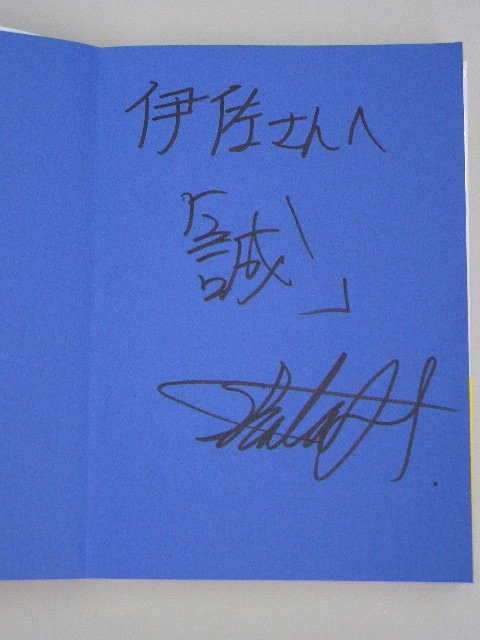 伊佐さんへ
「誠」